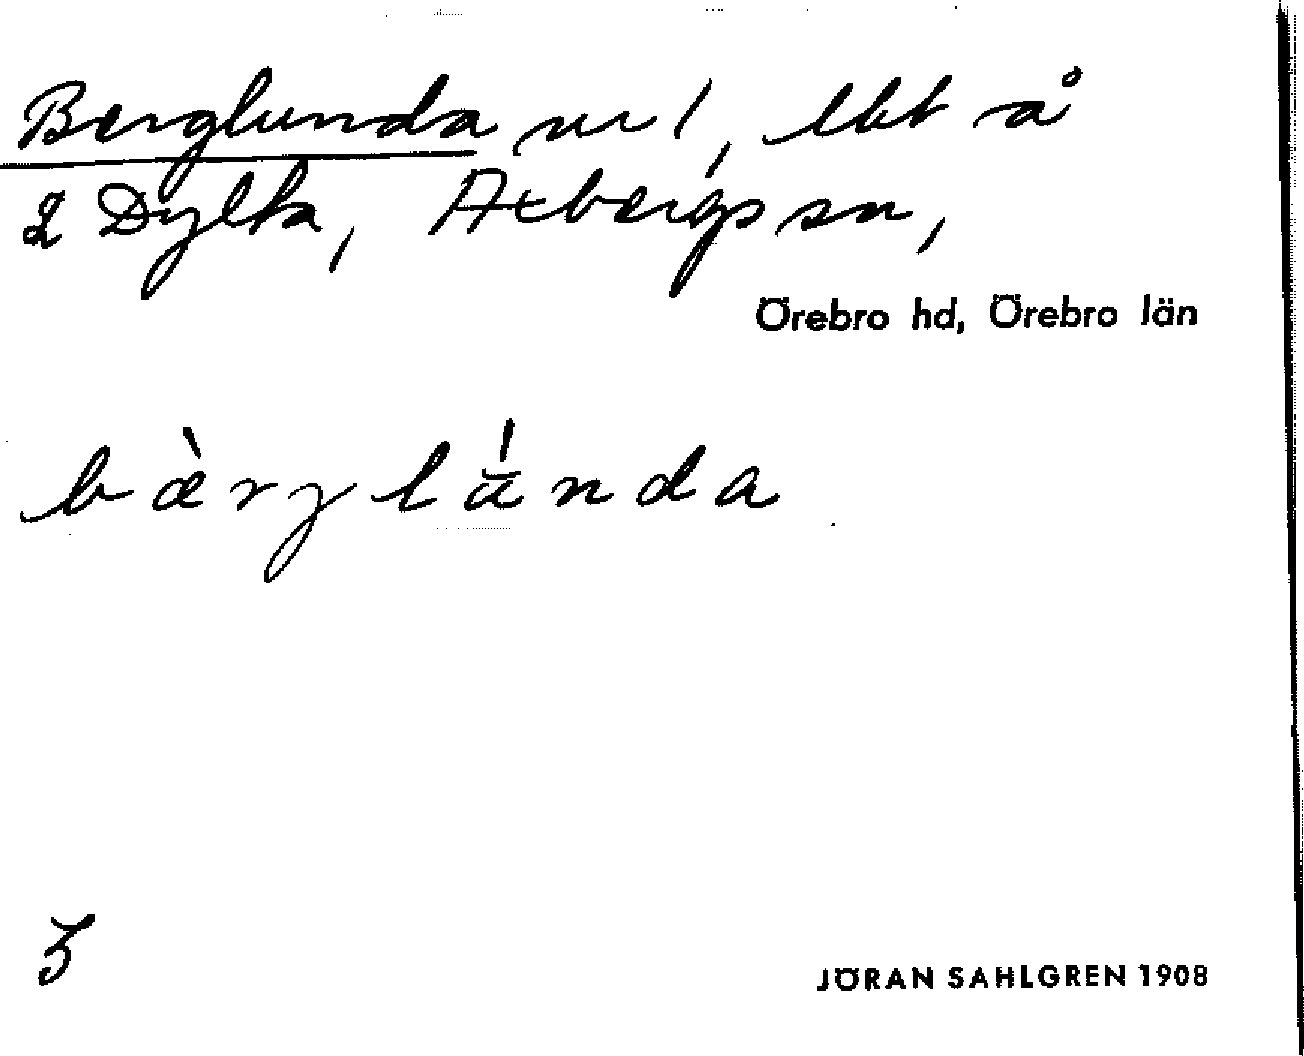 Berglunda nr 1, lht å
2 Dylta, Axbergs sn,
Örebro hd, Örebro län
bæ̀rylá̄nda
3
JÖRAN SAHLGREN 1908